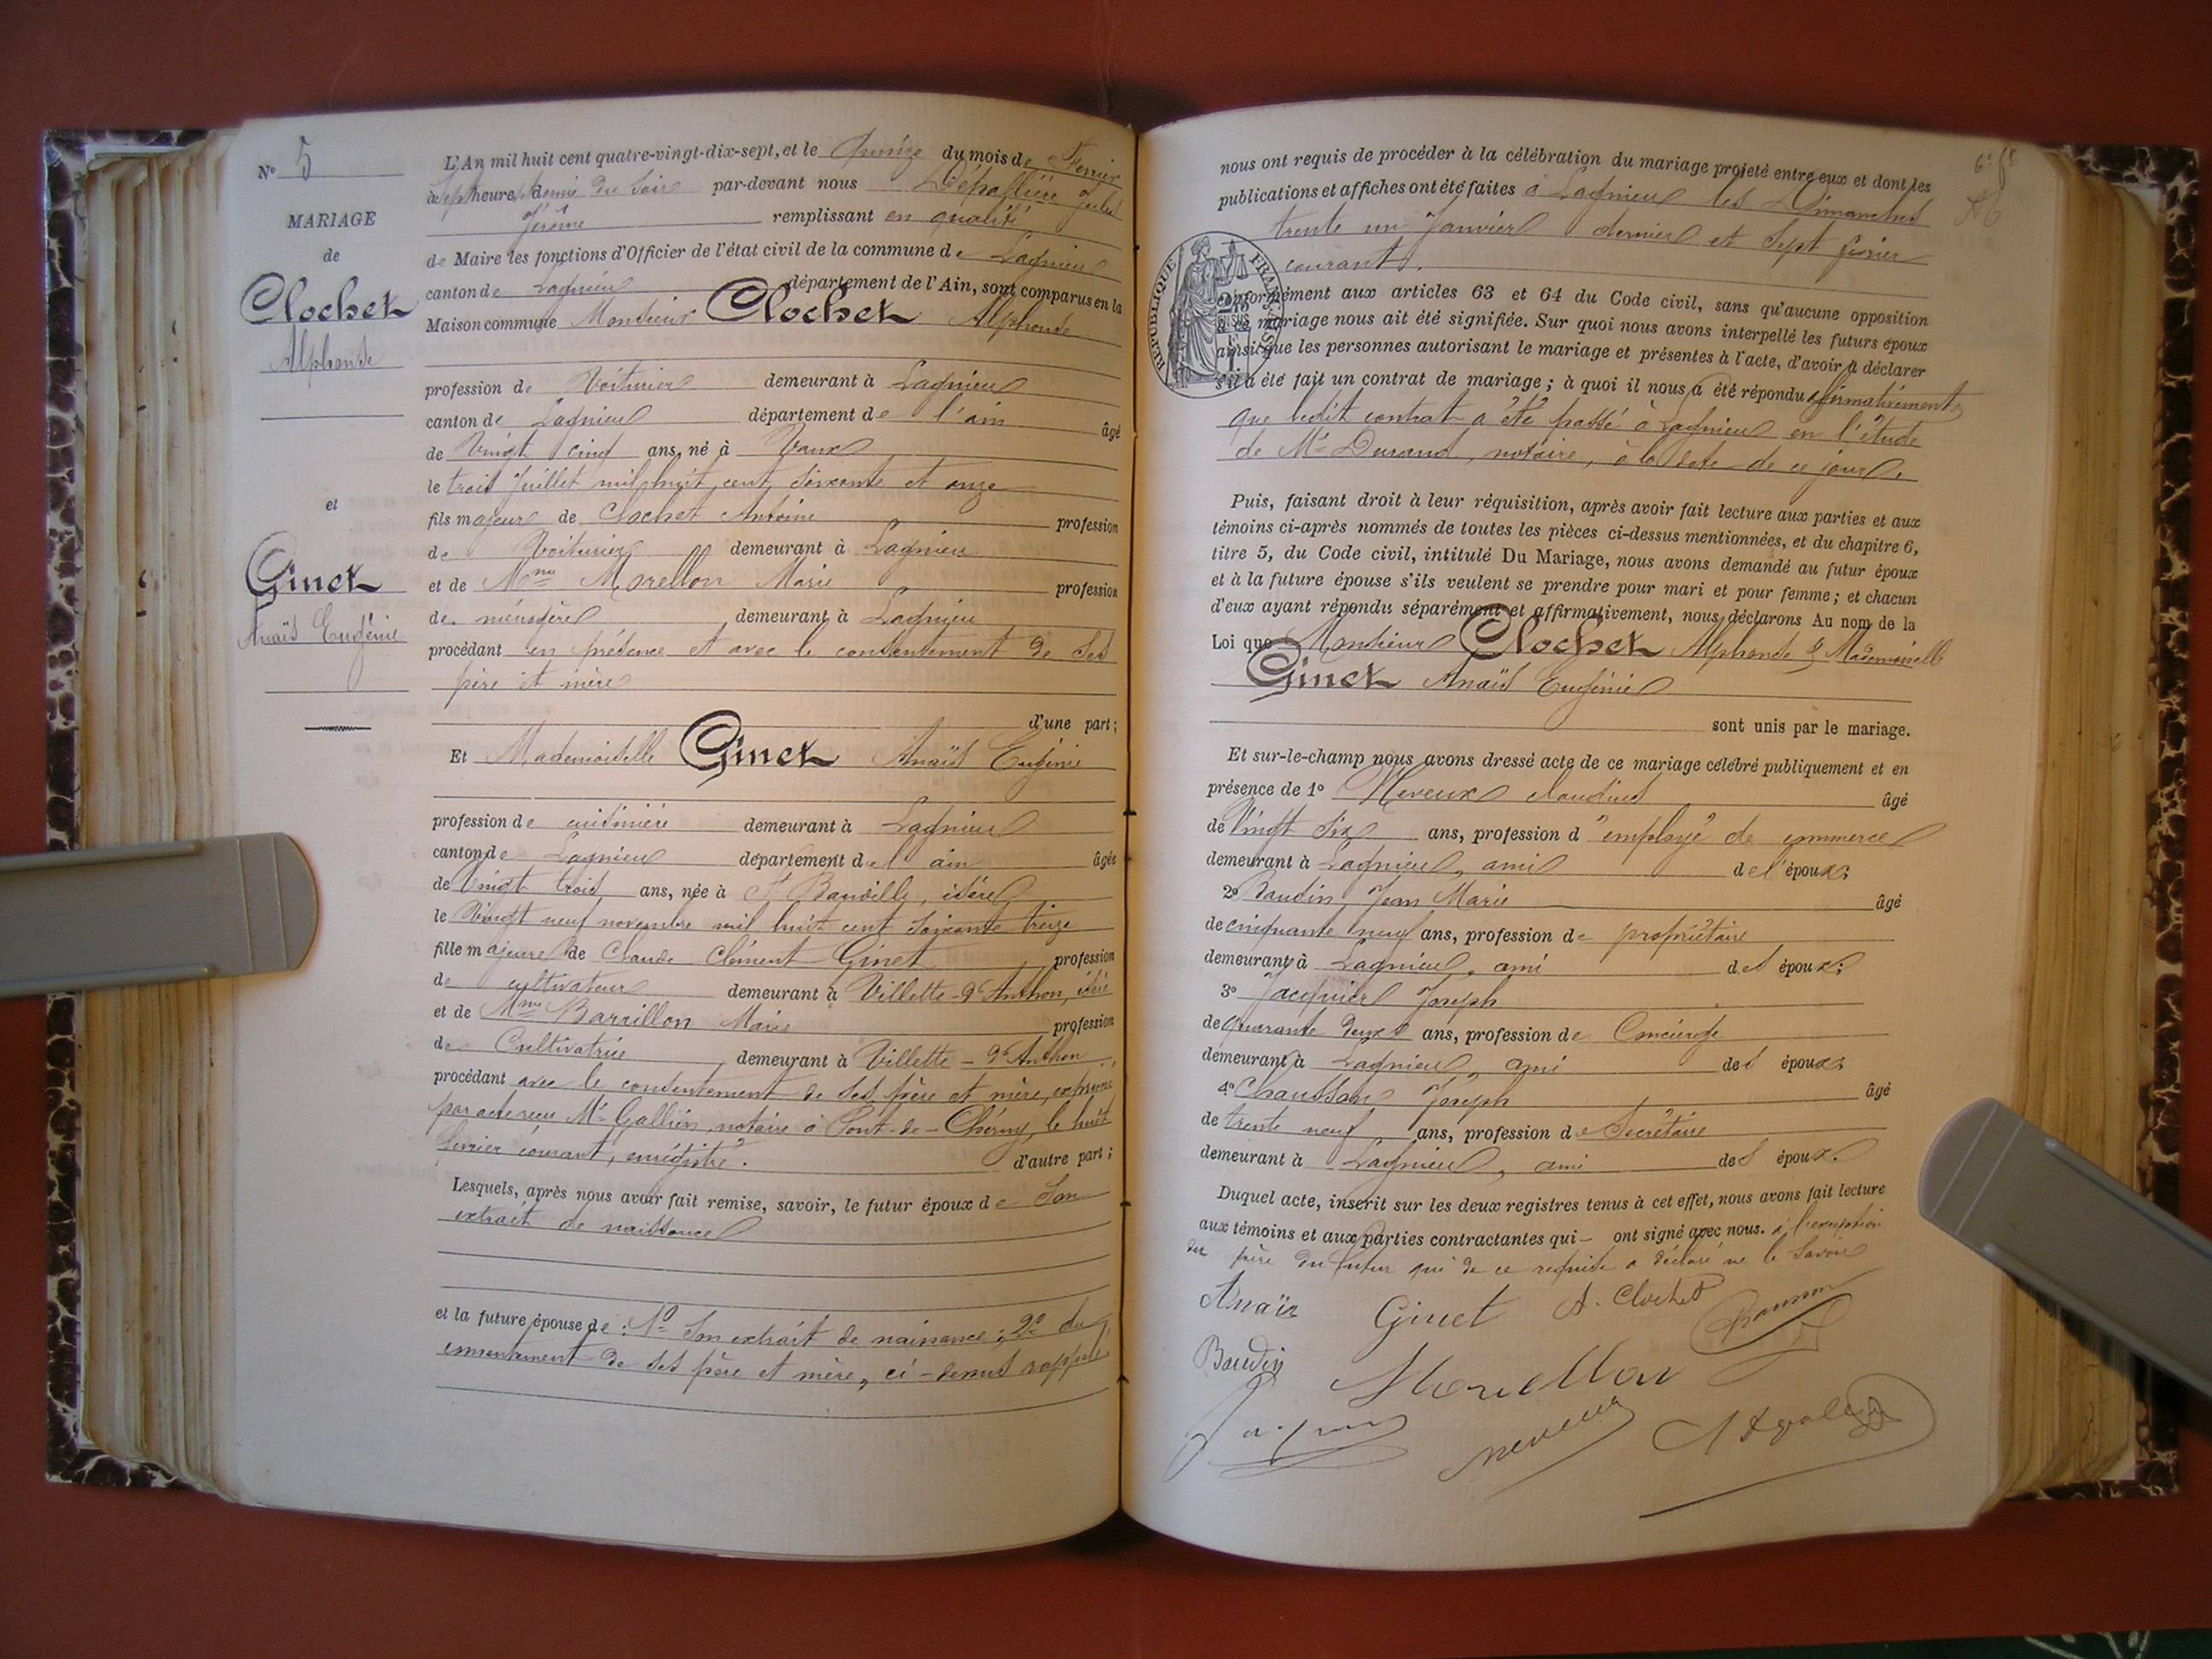 N° 5
MARIAGE
de
Clochet
Alphonse
et
Ginet
Anaïs Eugénie
L'An mil huit cent quatre-vingt-dix-sept, et le quinze du mois de Fevrier
à sept heures, demie du soir par-devant nous Jules
Jérôme remplissant en qualité
de Maire les fonctions d'Officier de l'état civil de la commune de Lagnieu
canton de Lagnieu département de l'Ain, sont comparus en la
Maison commune Monsieur Clochet Alphonse
profession de Voiturier demeurant à Lagnieu
canton de Lagnieu département de l'ain âgé
de Vingt cinq ans, né à Vaux
le trois Juillet mil huit cent soixante et onze
fils majeur de Clochet Antoine profession
de Voiturier demeurant à Lagnieu
et de Mme Morellon Marie profession
de ménagère demeurant à Lagnieu
procédant en présence et avec le consentement de ses
père et mère
d'une part ;
Et Mademoiselle Ginet Anaïs Eugénie
profession de cuisinière demeurant à Lagnieu
canton de Lagnieu département de l'ain âgée
de Vingt trois ans, née à St Baudille, isère
le Vingt neuf novembre mil huit cent soixante treize
fille majeure de Claude Clément Ginet profession
de cultivateur demeurant à Villette-d'Anthon, isère
et de Mme Barrillon Marie profession
de Cultivatrice demeurant à Villette-d'Anthon,
procédant avec le consentement de ses père et mère, exprimé
par acte reçu Me Gallien, notaire à Pont-de-Chéruy, le huit
février courant, enrégistré. d'autre part ;
Lesquels, après nous avoir fait remise, savoir, le futur époux de son
extrait de naissance
et la future épouse de : 1° son extrait de naissance ; 2° du
consentement de ses père et mère, ci-dessus rappelé
nous ont requis de procéder à la célébration du mariage projeté entre eux et dont les
publications et affiches ont été faites à Lagnieu les Dimanches
trente un Janvier dernier et sept février
courant.
RÉPUBLIQUE FRANÇAISE
conformément aux articles 63 et 64 du Code civil, sans qu'aucune opposition
à ce mariage nous ait été signifiée. Sur quoi nous avons interpellé les futurs époux
ainsi que les personnes autorisant le mariage et présentes à l'acte, d'avoir à déclarer
s'il a été fait un contrat de mariage ; à quoi il nous a été répondu affirmativement
que ledit contrat a été passé à Lagnieu en l'étude
de Me Durand, notaire, à la date de ce jour.
Puis, faisant droit à leur réquisition, après avoir fait lecture aux parties et aux
témoins ci-après nommés de toutes les pièces ci-dessus mentionnées, et du chapitre 6,
titre 5, du Code civil, intitulé Du Mariage, nous avons demandé au futur époux
et à la future épouse s'ils veulent se prendre pour mari et pour femme ; et chacun
d'eux ayant répondu séparément et affirmativement, nous déclarons Au nom de la
Loi que Monsieur Clochet Alphonse & Mademoiselle
Ginet Anaïs Eugénie
sont unis par le mariage.
Et sur-le-champ nous avons dressé acte de ce mariage célébré publiquement et en
présence de 1° claudius âgé
de Vingt six ans, profession d'employé de commerce
demeurant à Lagnieu, ami de l'époux ;
2° Baudin Jean Marie âgé
de cinquante neuf ans, profession de propriétaire
demeurant à Lagnieu, ami des époux ;
3° Jacquier Joseph
de quarante deux ans, profession de Concierge
demeurant à Lagnieu, ami des époux ;
4° Joseph âgé
de trente neuf ans, profession de Secrétaire
demeurant à Lagnieu, ami des époux.
Duquel acte, inscrit sur les deux registres tenus à cet effet, nous avons fait lecture
aux témoins et aux parties contractantes qui ont signé avec nous. à l'exception
du père du futur qui de ce requis a déclaré ne le savoir
Anaïs Ginet A. Clochet
Baudin Morellon